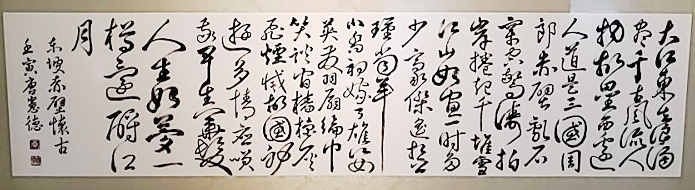 大江東去浪淘
盡千古風流人
物故壘西邊
人道是三國周
郎赤壁亂石
穿空驚濤拍
岸捲起千堆雪
江山如畫一時多
少豪傑遙想公
瑾當年
小喬初嫁了雄姿
英發羽扇綸巾
笑談間檣櫓灰
飛煙滅故國神
遊多情應笑
我早生華髮
人生如夢一
樽還酹江
月
東坡赤壁懷古
壬寅